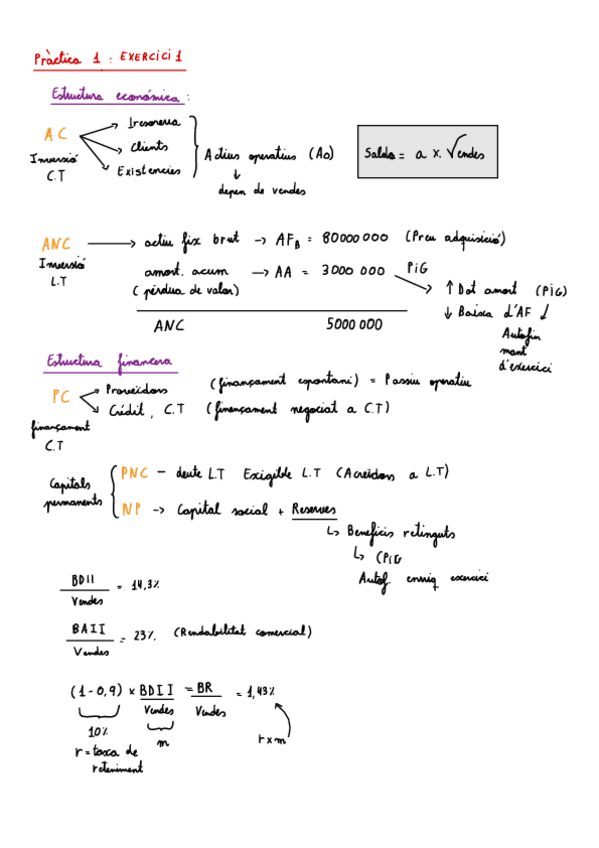 Pràctica 1 : EXERCICI 1
Estructura econòmica :
AC
Inversió
C.T
Tresoreria
Clients
Existències
Actius operatius (Ao)
↓
depen de vendes
Saldo = a x. Vendes
ANC
Inversió
L.T
→ actiu fix brut → AF_B = 80000000 (Preu adquisició)
amort. acum → AA = 3000 000
(pérdua de valor)
PiG
↑ Dot amort (PiG)
↓ Baixa d'AF ↓
Autofin
mant
d'exercici
ANC 5000 000
Estructura financera
PC
finançament
C.T
Proveïdors (finançament espontani) = Passiu operatiu
Crèdit, C.T (finençament negociat a C.T)
Capitals
permanents
PNC - deute L.T Exigible L.T (Acreidors a L.T)
NP → Capital social + Reserves
↳ Beneficis retinguts
↳ (PiG
Autof. enriq exercici
BDII / Vendes = 14,3%
BAII / Vendes = 23% (Rendabilitat comercial)
(1-0,9) x BDII / Vendes = BR / Vendes = 1,43%
10% m r x m
r = taxa de
reteniment